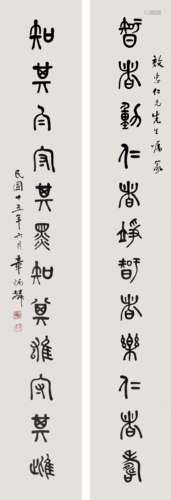 仁兄先生屬篆
智者動仁者竫智者樂仁者壽
知其白守其黑知其雄守其雌
民國十五年六月章炳麟